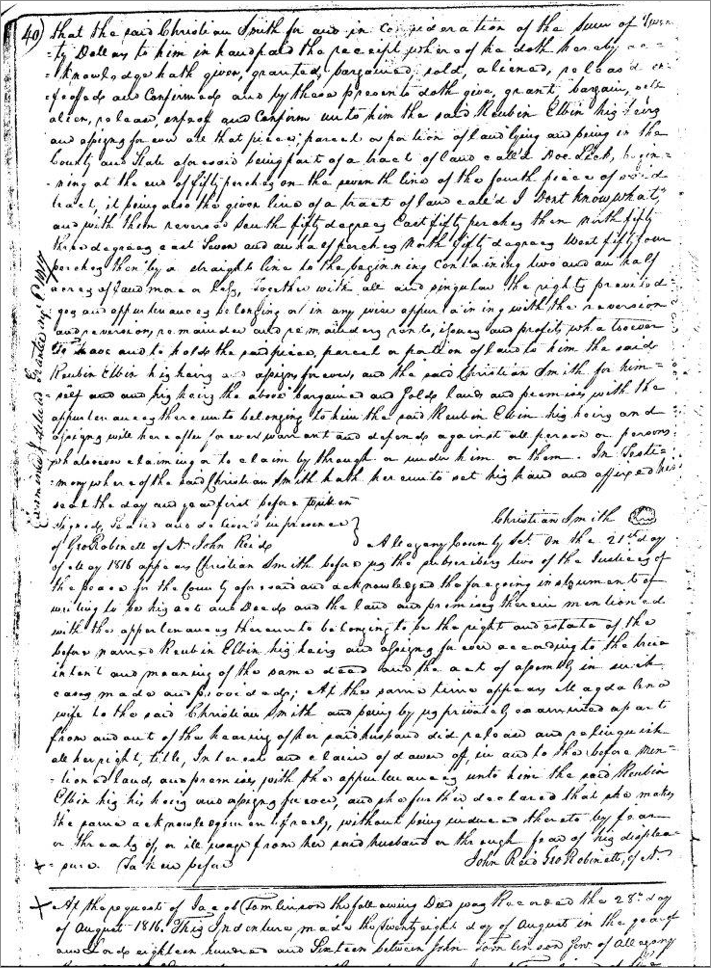 40) that the said Christian Smith for and in Consideration of the Sum of Twen
ty Dollars to him in hand paid the receipt whereof he doth hereby ac-
-knowledge hath given, granted, bargained, sold, aliened, releas'd en
-feoffed and Confirmed and by these presents doth give, grant bargain, sell
alien, release, enfeof and Confirm unto him the said Reubin Elbin his heirs
and assigns forever all that piece, parcel or portion of land lying and being in the
County and State aforesaid being part of a tract of land call'd Doe Lick, begin-
-ning at the end of fifty perches on the seventh line of the fourth piece of said
tract, it being also the given line of a tract of land call'd I Dont know what,
and with them reversed South fifty degrees East fifty perches then north fifty
three degrees east Seven and an half perches North fifty degrees West fifty four
perches then by a straight line to the beginning Containing two and an half
acres of land more or less, together with all and singular the rights priviled
ges and appurtenances belonging or in any wise appurtaining with the reversion
and reversions, remainder and remainders rents, issues and profits whatsoever
To have and to hold the said piece, parcel or portion of land to him the said
Reubin Elbin his heirs and assigns forever, and the said Christian Smith for him-
self and and his heirs the above bargained and Sold land and premises with the
appurtenances thereunto belonging to him the said Reubin Elbin his heirs and
assigns will hereafter forever warrant and defend against all person or persons
whatsoever claiming or to claim by through or under him or them. In Testi-
mony whereof the said Christian Smith hath hereunto set his hand and affixed his
seal the day and year first before written
Signed, Sealed and deliver'd in presence } Christian Smith
of Geo Robinett of N. John Reid } Allegany County Sct. On the 21st day
of May 1816 appears Christian Smith before us the subscribers two of the Justices of
the peace for the County aforesaid and acknowledged the foregoing instrument of
writing to be his act and Deed and the land and premises therein mentioned
with the appertenances thereunto belonging to be the right and estate of the
before named Reubin Elbin his heirs and assigns forever according to the true
intent and meaning of the same deed and the act of assembly in such
cases made and provided; At the same time appears Magdalena
wife to the said Christian Smith and being by us privately examined apart
from and out of the hearing of her said husband did release and relinquish
all her right, title, Interest and claim of dower of, in and to the before men-
-tioned land, and premises, with the appurtenances unto him the said Reubin
Elbin his his heirs and assigns forever, and she further declared that she makes
the same acknowledgement freely, without being induced thereto by fear
or threats of, or ill usage from her said husband or through fear of his displea-
-sure Taken before John Reid Geo Robinett, of N.
At the request of Jacob Tomlinson the following Deed was Recorded the 28th day
of August 1816. This Indenture, made the Twenty eight day of August in the year of
our Lord eighteen hundred and Sixteen between John Tomlinson of Allegany